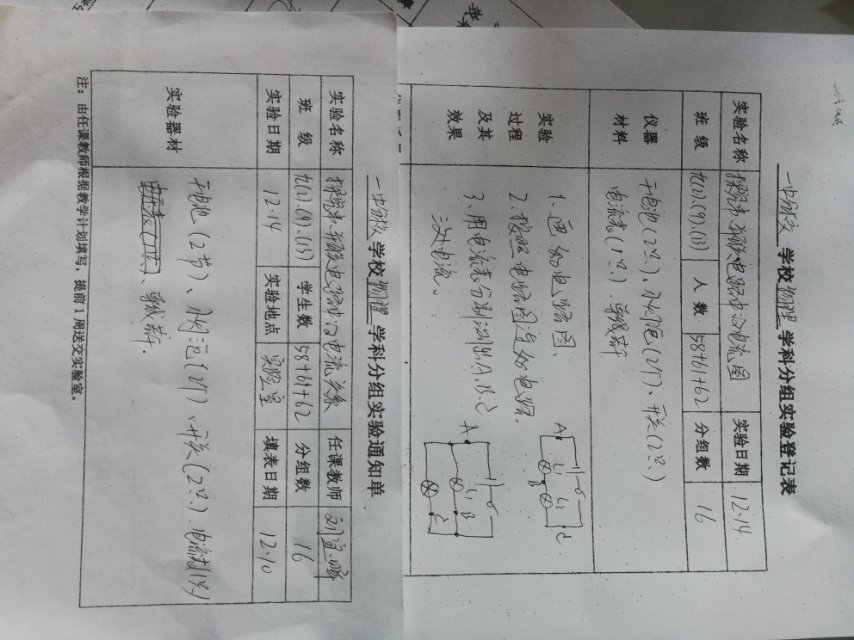 一中分校 学校 物理 学科分组实验登记表
实验名称 探究串、并联电路中的电流图 实验日期 12.14
班级 九(2).(9).(13) 人数 58+61+62 分组数 16
仪器材料 干电池(2只)、小灯泡(2个)、开关(2只)
电流表(1只)、导线若干
实验过程及其效果 1、画好电路图、
2、按照电路图连好电路.
3、用电流表分别测出A、B、C
三处电流。
A L1 L2 B C
A L1 B C
一中分校 学校 物理 学科分组实验通知单
实验名称 探究串、并联电路中的电流关系 任课教师
班级 九(2).(9).(13) 学生数 58+61+62 分组数 16
实验日期 12.14 实验地点 实验室 填表日期 12.10
实验器材 干电池(2节)、小灯泡(2个)、开关(2只)、电流表(1只)
、导线若干.
注：由任课教师根据教学计划填写，提前1周送交实验室。